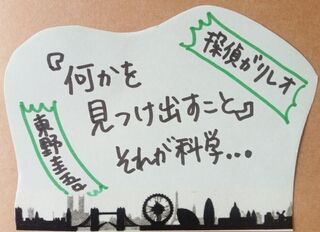 探偵ガリレオ
『何かを
見つけ出すこと』
それが科学...
東野圭吾